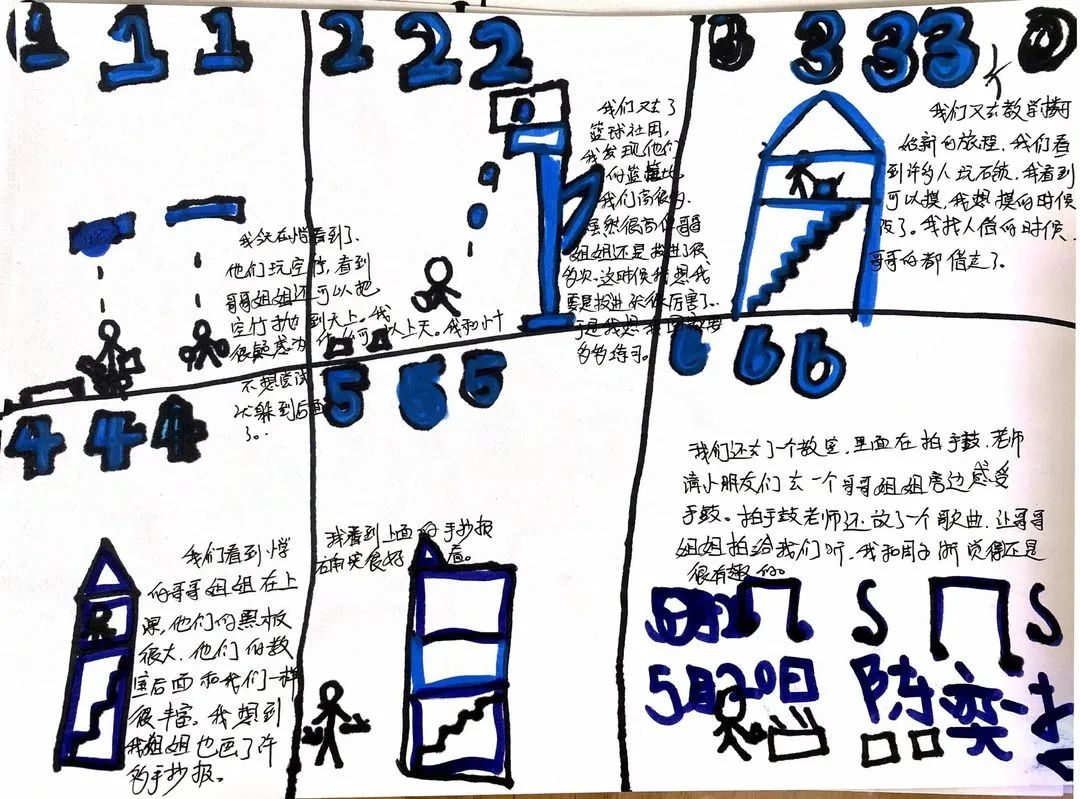 1 1 1
我们在小学看到了
他们玩空竹,看到
哥哥姐姐还可以把
空竹抛到天上。我
很疑惑为什么可以上天。我和小
不想尝试
就躲到后面
了。
2 2 2
我们又去了
篮球社团,
我发现他们
的篮球比
我们高很多,
虽然很高但哥哥
姐姐还是投进了很
多次。这时候我想我
要是投进就很厉害了。
于是我想我要
多多练习。
3 3 3 3
我们又去教学楼开
始新的旅程,我们看
到许多人玩石锁,我看到
可以摸,我想摸的时候
没了。我找人借的时候,
哥哥的都借走了。
4 4 4
我们看到小学
的哥哥姐姐在上
课,他们的黑板
很大,他们的教
室后面和我们一样
很丰富。我想到
我姐姐也画了许
多手抄报。
5 5 5
我看到上面的手抄报
看。
6 6 6
我们还去了一个教室,里面在拍手鼓,老师
请小朋友们去一个哥哥姐姐旁边感受
手鼓。拍手鼓老师还放了一个歌曲,让哥哥
姐姐拍给我们听,我和周子浙觉得还是
很有趣的。
5月20日 陈奕